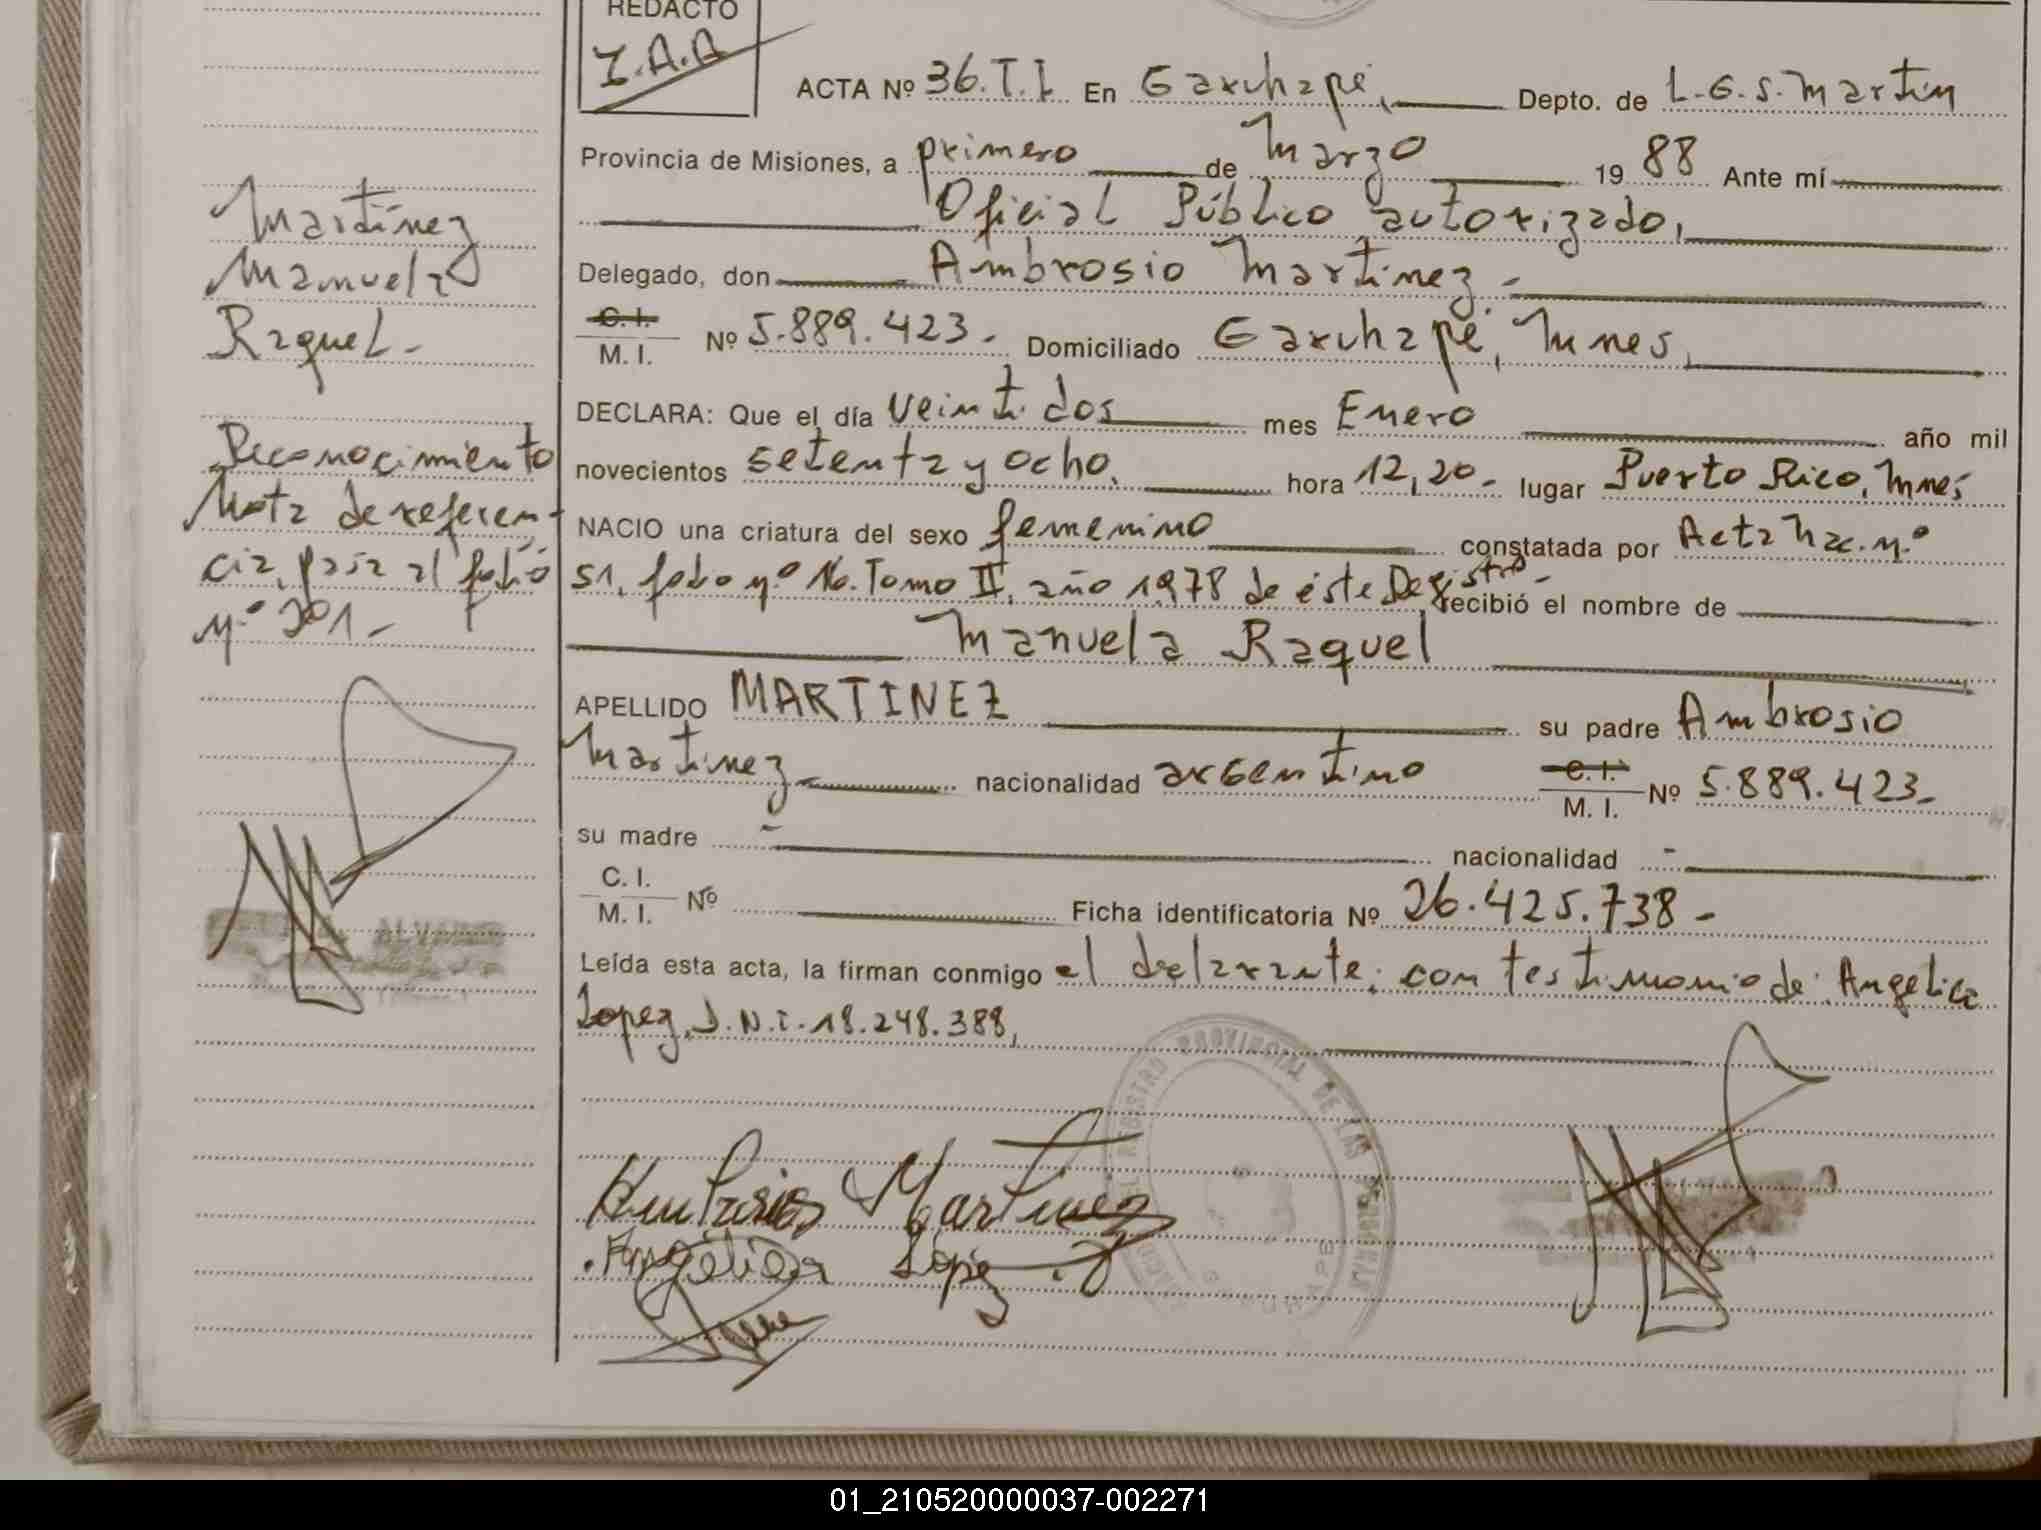 REDACTO
I.A.A
ACTA Nº 36.T.I. En Garuhapé, Depto. de L.G.S. Martín
Provincia de Misiones, a primero de Marzo 19 88 Ante mí
Oficial Público autorizado,
Delegado, don Ambrosio Martínez.-
C. I.
M. I. Nº 5.889.423.- Domiciliado Garuhapé, Mnes,
DECLARA: Que el día veintidos mes Enero año mil
novecientos setenta y ocho, hora 12,20.- lugar Puerto Rico, Mnes,
NACIO una criatura del sexo femenino constatada por Acta Nac. nº
51, folio nº 16. Tomo II, año 1978 de éste Registro.- recibió el nombre de
Manuela Raquel
APELLIDO MARTINEZ su padre Ambrosio
Martínez nacionalidad argentino C. I.
M. I. Nº 5.889.423.-
su madre - nacionalidad -
C. I.
M. I. Nº Ficha identificatoria Nº 26.425.738-
Leída esta acta, la firman conmigo el delarante; con testimonio de: Angelica
Lopez, D.N.I. 18.248.388,
Martínez
Manuela
Raquel-
Reconocimiento
Nota de referen-
cia, pasa al folio
nº 201.-
ALVAREZ
REGISTRO PROVINCIAL DE LAS PERSONAS
GARUHAPE
Martinez
Angélica López
01_210520000037-002271